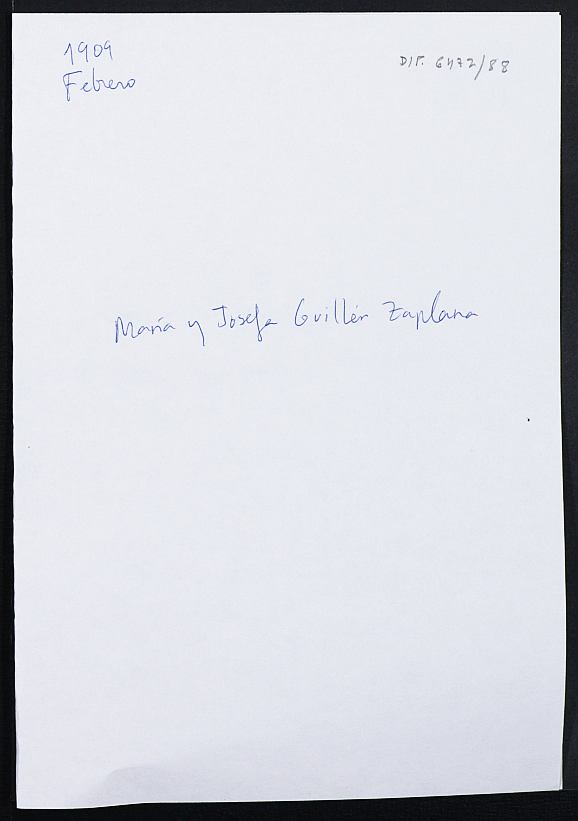 1909
DIP. 6472/88
Febrero
María y Josefa Guillén Zaplana